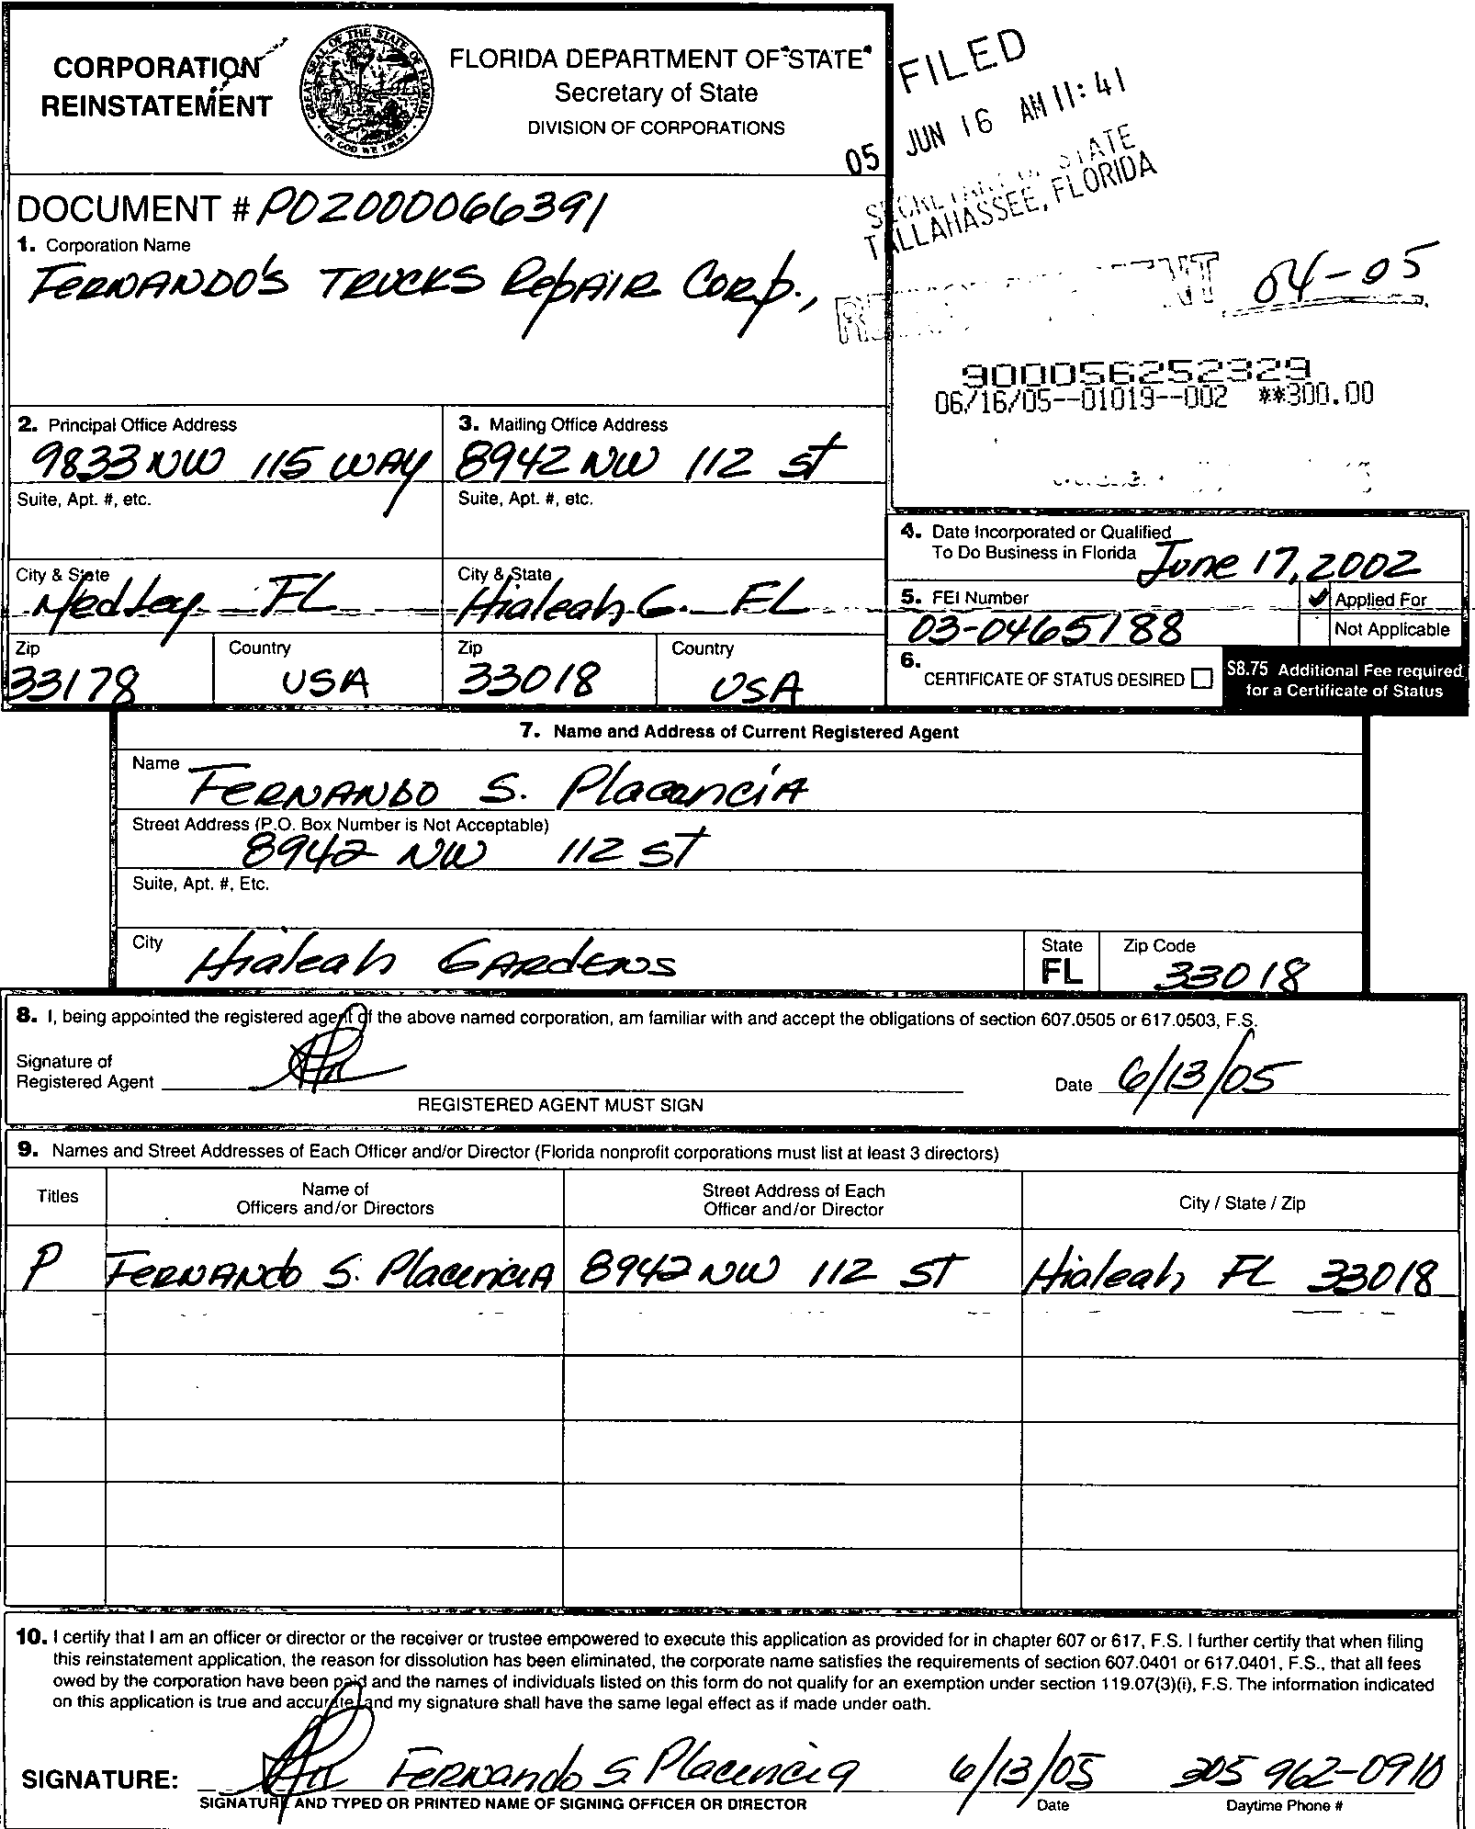 CORPORATION
REINSTATEMENT
GREAT SEAL OF THE STATE OF FLORIDA
IN GOD WE TRUST
FLORIDA DEPARTMENT OF STATE
Secretary of State
DIVISION OF CORPORATIONS
FILED
05 JUN 16 AM 11:41
SECRETARY OF STATE
TALLAHASSEE, FLORIDA
DOCUMENT # P02000066391
1. Corporation Name
FERNANDO'S TRUCKS REPAIR CORP.,
04-05
900056252329
06/16/05--01019--002 **300.00
2. Principal Office Address
9833 NW 115 WAY
3. Mailing Office Address
8942 NW 112 St
Suite, Apt. #, etc.
Suite, Apt. #, etc.
City & State
Medley FL
City & State
Hialeah G. FL
Zip
33178
Country
USA
Zip
33018
Country
USA
4. Date Incorporated or Qualified
To Do Business in Florida
June 17, 2002
5. FEI Number
03-0465788
✓ Applied For
Not Applicable
6.
CERTIFICATE OF STATUS DESIRED
$8.75 Additional Fee required
for a Certificate of Status
7. Name and Address of Current Registered Agent
Name
FERNANDO S. Placencia
Street Address (P.O. Box Number is Not Acceptable)
8942 NW 112 ST
Suite, Apt. #, Etc.
City
Hialeah GARDENS
State
FL
Zip Code
33018
8. I, being appointed the registered agent of the above named corporation, am familiar with and accept the obligations of section 607.0505 or 617.0503, F.S.
Signature of
Registered Agent
Date 6/13/05
REGISTERED AGENT MUST SIGN
9. Names and Street Addresses of Each Officer and/or Director (Florida nonprofit corporations must list at least 3 directors)
Titles
Name of
Officers and/or Directors
Street Address of Each
Officer and/or Director
City / State / Zip
P FERNANDO S. PlacenciA 8942 NW 112 ST Hialeah, FL 33018
10. I certify that I am an officer or director or the receiver or trustee empowered to execute this application as provided for in chapter 607 or 617, F.S. I further certify that when filing
this reinstatement application, the reason for dissolution has been eliminated, the corporate name satisfies the requirements of section 607.0401 or 617.0401, F.S., that all fees
owed by the corporation have been paid and the names of individuals listed on this form do not qualify for an exemption under section 119.07(3)(i), F.S. The information indicated
on this application is true and accurate, and my signature shall have the same legal effect as if made under oath.
SIGNATURE: Fernando S Placencia 6/13/05 305 962-0910
SIGNATURE AND TYPED OR PRINTED NAME OF SIGNING OFFICER OR DIRECTOR
Date
Daytime Phone #